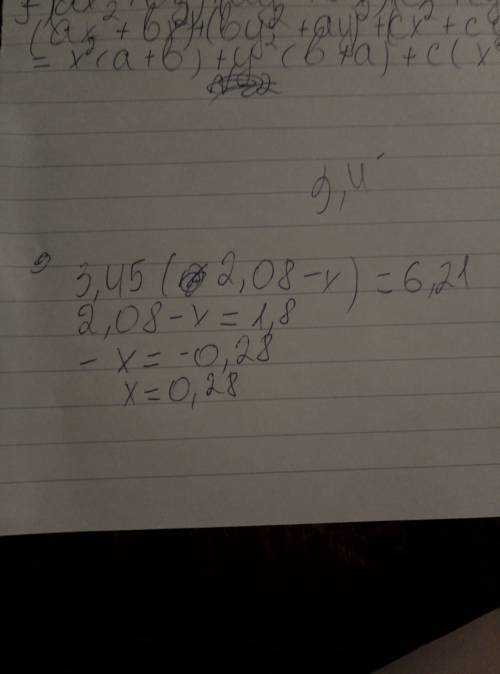 (ax² + bx²)+(by² + ay²)+(cx² + c
= x²(a+b)+y²(b+a)+c(x²
9,4
9
3,45(2,08-x)=6,21
2,08-x=1,8
-x=-0,28
x=0,28